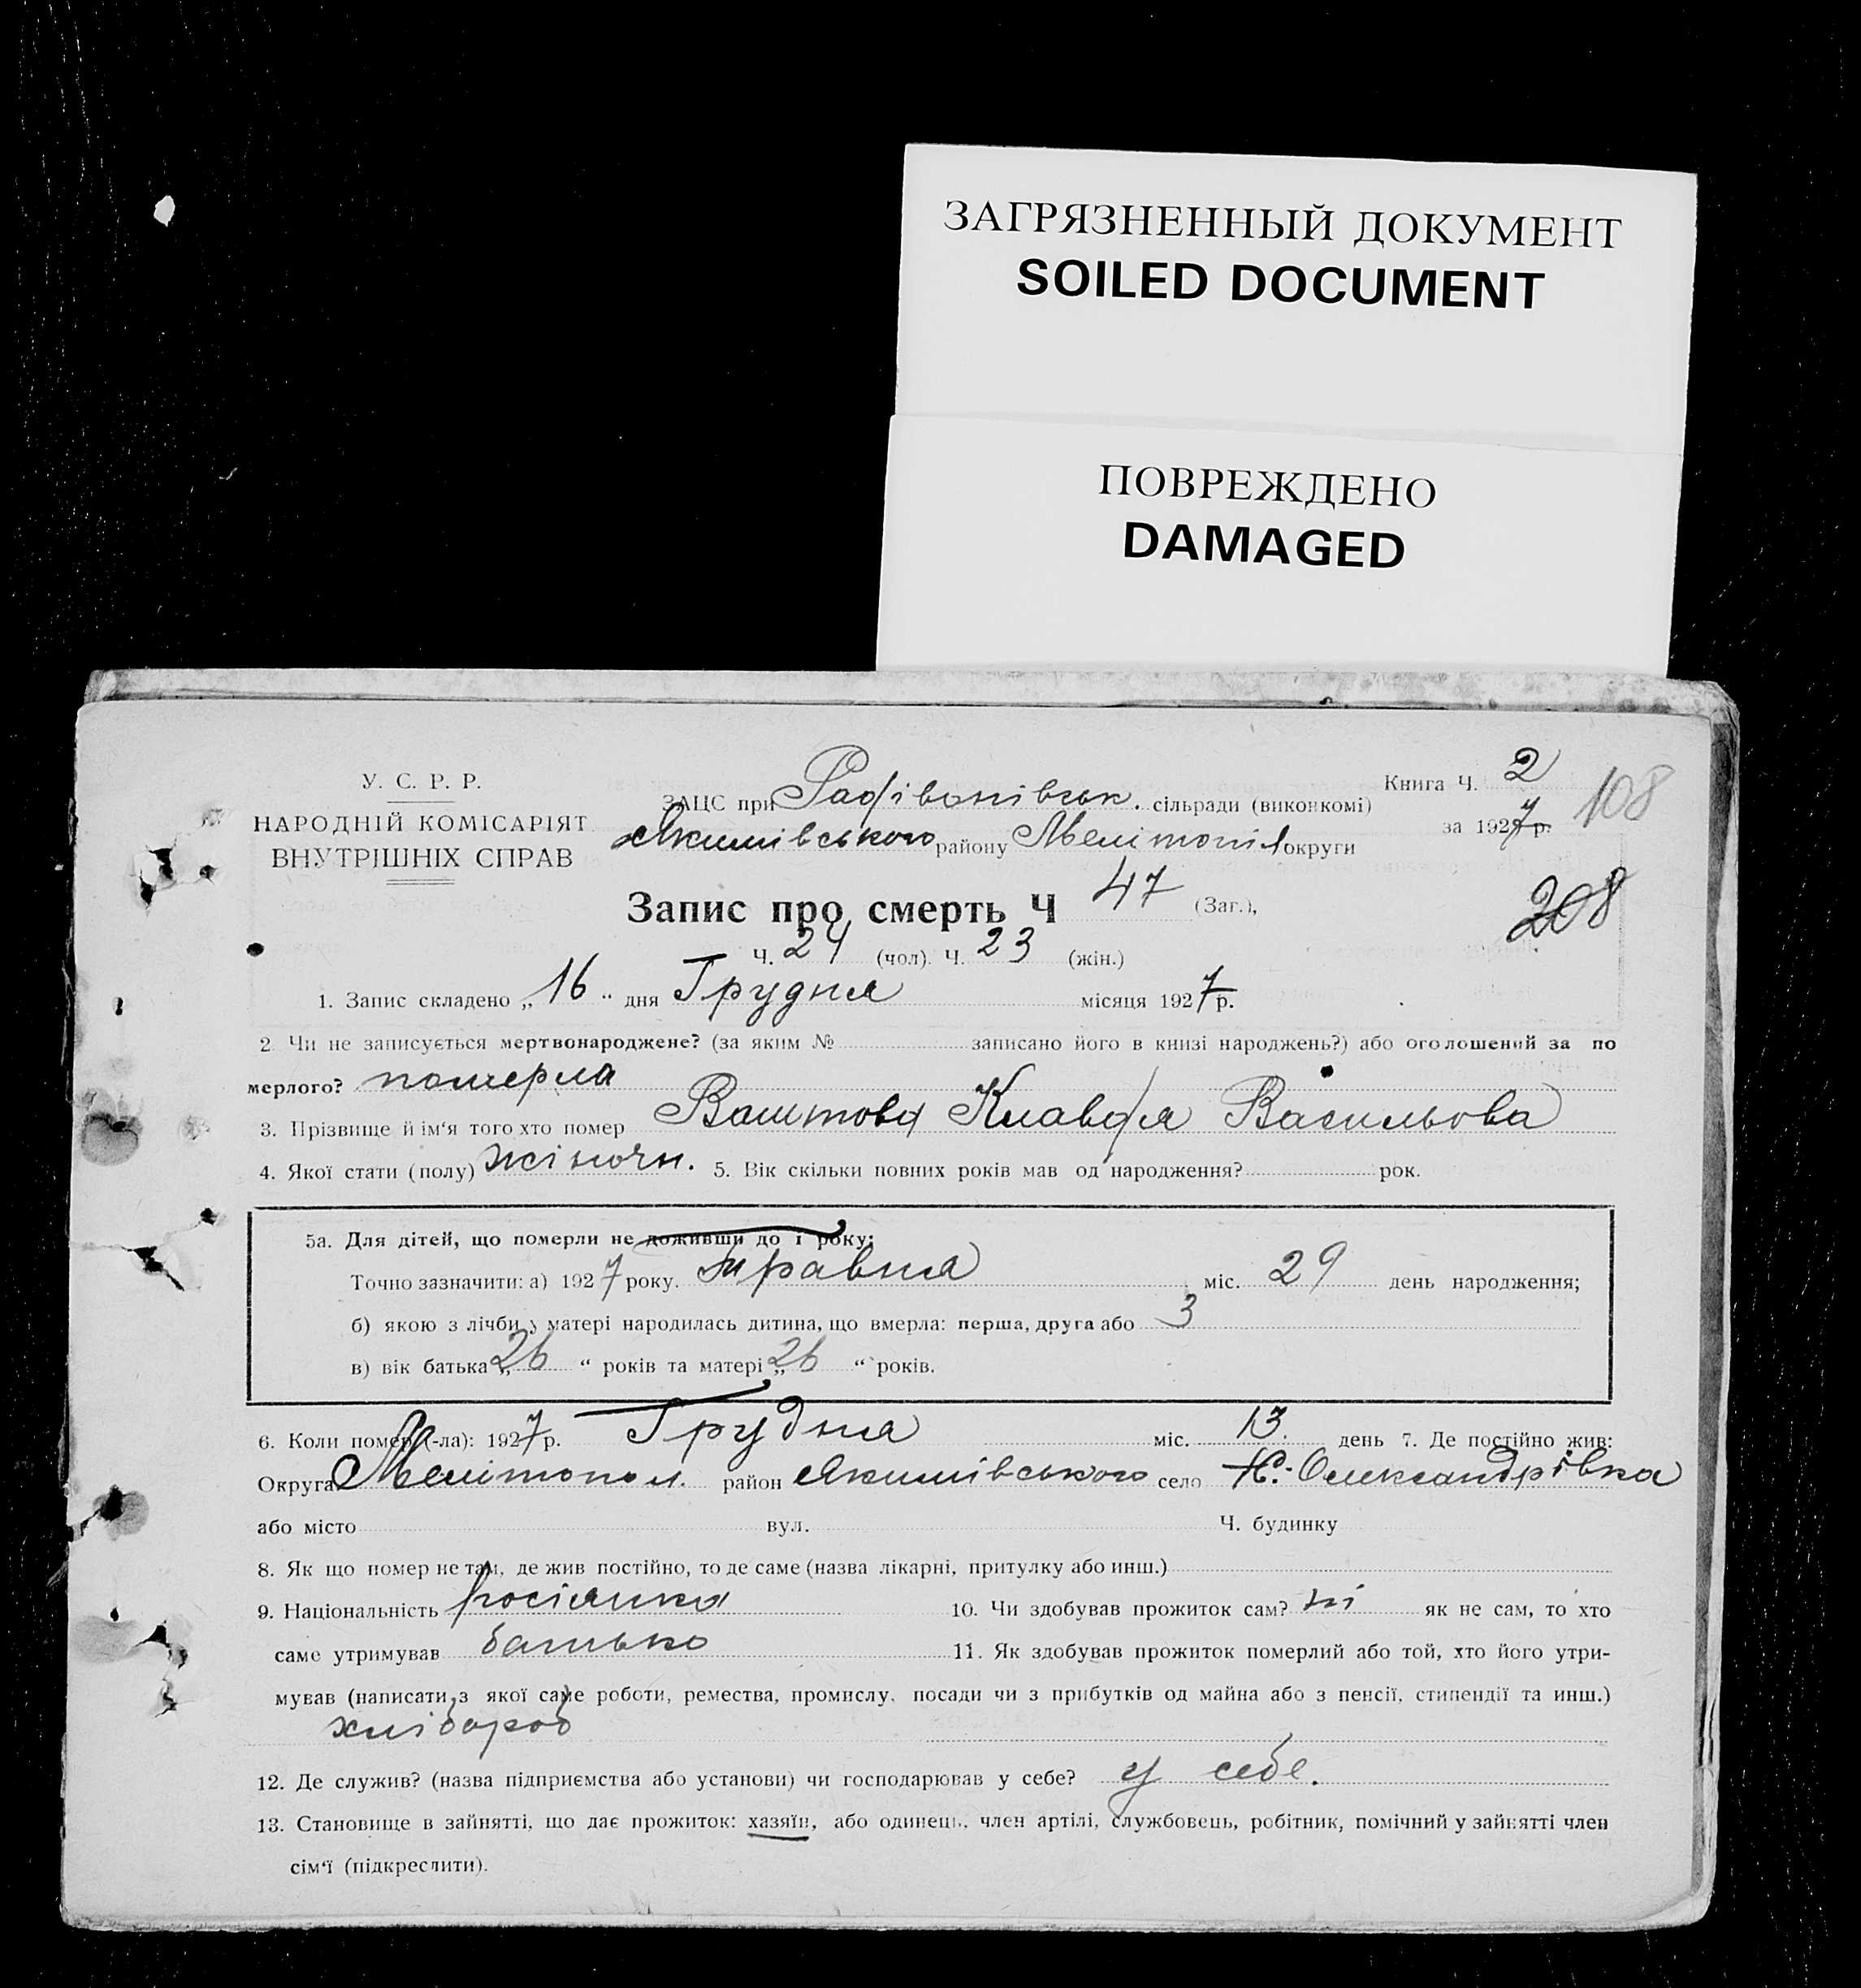 ЗАГРЯЗНЕННЫЙ ДОКУМЕНТ
SOILED DOCUMENT
ПОВРЕЖДЕНО
DAMAGED
У. С. Р. Р.
НАРОДНІЙ КОМІСАРІЯТ
ВНУТРІШНІХ СПРАВ
Книга Ч. 2
108
ЗАЦС при Радівонівськ. сільради (виконкомі)
за 1927 р.
Якимівського району Мелітопіл округи
208
Запис про смерть Ч 47 (Заг.),
Ч. 24 (чол). Ч. 23 (жін.)
1. Запис складено „ 16 “ дня Грудня місяця 1927 р.
2 Чи не записується мертвонароджене? (за яким № записано його в книзі народжень?) або оголошений за по
мерлого? померла
3. Прізвище й ім‘я того хто помер Ваштова Клавдія Васильова
4. Якої стати (полу) жіночн. 5. Вік скільки повних років мав од народження? рок.
5а. Для дітей, що померли не доживши до 1 року:
Точно зазначити: а) 1927 року. травня міс. 29 день народження;
б) якою з лічби у матері народилась дитина, що вмерла: перша, друга або 3
в) вік батька „ 26 “ років та матері „ 26 “ років.
6. Коли помер (-ла): 1927 р. Грудня міс. 13. день 7. Де постійно жив:
Округа Мелітопол. район Якимівського село Н.-Олександрівка
або місто вул. Ч. будинку
8. Як що помер не там, де жив постійно, то де саме (назва лікарні, притулку або инш.)
9. Національність росіянка 10. Чи здобував прожиток сам? ні як не сам, то хто
саме утримував батько 11. Як здобував прожиток померлий або той, хто його утри-
мував (написати з якої саме роботи, ремества, промислу, посади чи з прибутків од майна або з пенсії, стипендії та инш.)
хлібороб
12. Де служив? (назва підприємства або установи) чи господарював у себе? у себе.
13. Становище в зайнятті, що дає прожиток: хазяїн, або одинець, член артілі, службовець, робітник, помічний у зайнятті член
сім‘ї (підкреслити).